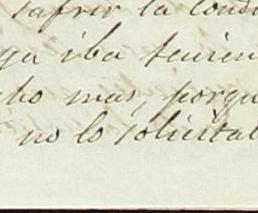 safrir la cond
ya iba tenien
cho mas, porqu
no lo solicita